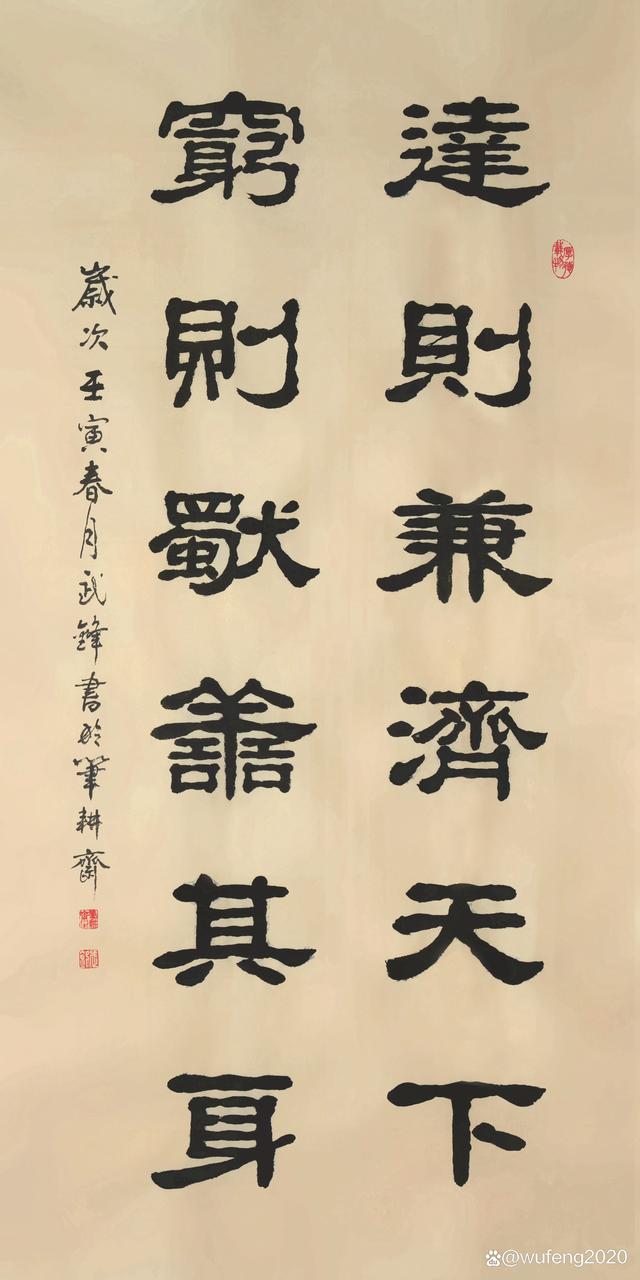 達則兼濟天下
窮則獨善其身
歲次壬寅春月武鋒書於筆耕齋
厚德載物
@wufeng2020